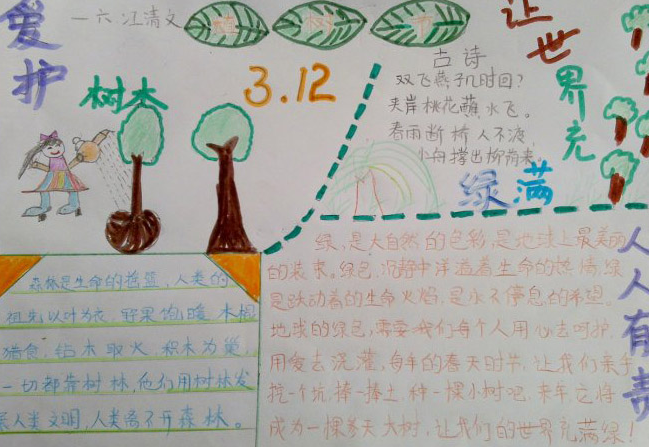 爱护
树木
一六 江清文
植 树 节
3.12
古诗
双飞燕子几时回?
夹岸桃花蘸水飞。
春雨断桥人不渡,
小舟撑出柳荫来。
让世界充
满
绿
人人有责
森林是生命的摇篮,人类的
祖先以叶为衣,野果饱暖,木棍
猎食,钻木取火,积木为巢,
一切都靠树林,他们用树林发
人类文明,人类离不开森林。
绿,是大自然的色彩,是地球上最美丽
的装束。绿色,沉静中洋溢着生命的热情,绿
是跃动着的生命火焰,是永不停息的希望。
地球的绿色,需要我们每个人用心去呵护,
用爱去浇灌,每年的春天时节,让我们亲手
挖一个坑,捧一捧土,种一棵小树吧,来年它将
成为一棵参天大树,让我们的世界充满绿!